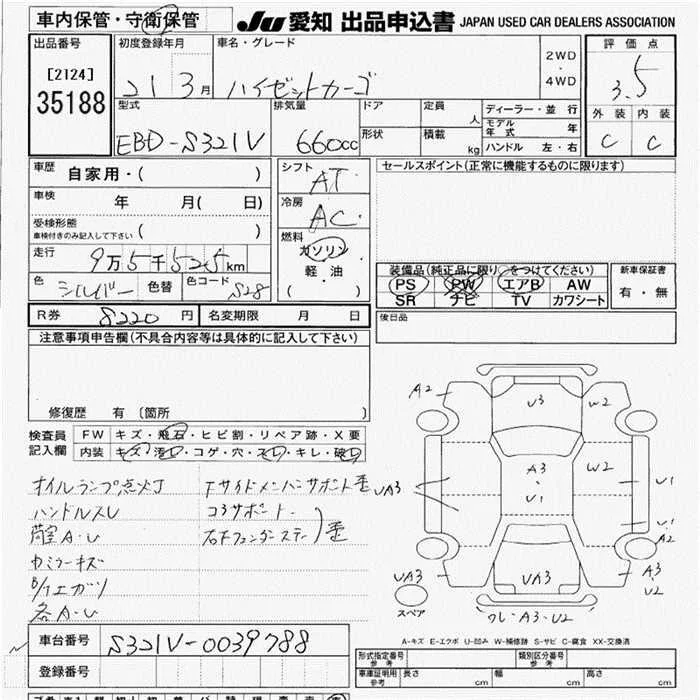 車内保管・守衛保管
JU 愛知 出品申込書 JAPAN USED CAR DEALERS ASSOCIATION
出品番号 初度登録年月 車名・グレード 2WD・4WD 評価点
[2124] 21 3月 ハイゼットカーゴ 3.5
35188
型式 排気量 ドア 定員 人 ディーラー・並行 外装 内装
EBD-S321V 660cc 形状 積載 kg モデル年式 年 C C
ハンドル 左・右
車歴 自家用・( ) シフト AT セールスポイント(正常に機能するものに限ります)
車検 年 月( 日) 冷房 AC
受検形態 ( )
車検付きのみ記入して下さい
燃料 ガソリン・軽油 ( )
走行 9万5千525km
色 シルバー 色替 色コード S28
装備品(純正品に限り○をつけてください) 新車保証書
PS PW エアB AW 有・無
SR ナビ TV カワシート
R券 8220円 名変期限 月 日 後日品
注意事項申告欄(不具合内容等は具体的に記入して下さい)
修復歴 有 〔箇所 〕
検査員記入欄 FW キズ・飛石・ヒビ割・リペア跡・X要
内装 キズ・汚れ・コゲ・穴・スレ・キレ・破れ
オイルランプ点灯
ハンドルスレ
荷室A・U
カミラーキズ
各A・U
Fサイドメンバーサポート歪
コアサポート
右Fフェンダーステー 歪
A2 U3 W2
A3 U1 W2
UA3 U1
U1
A2
UA3 UA3 A3 U2
スペア ワレ・A3・U2
A-キズ E-エクボ U-凹み W-補修跡 S-サビ C-腐食 XX-交換済
車台番号 S321V-0039788
登録番号
形式指定番号 参考 類別区分番号 参考
車庫証明用 参考 長さ cm 幅 cm 高さ cm